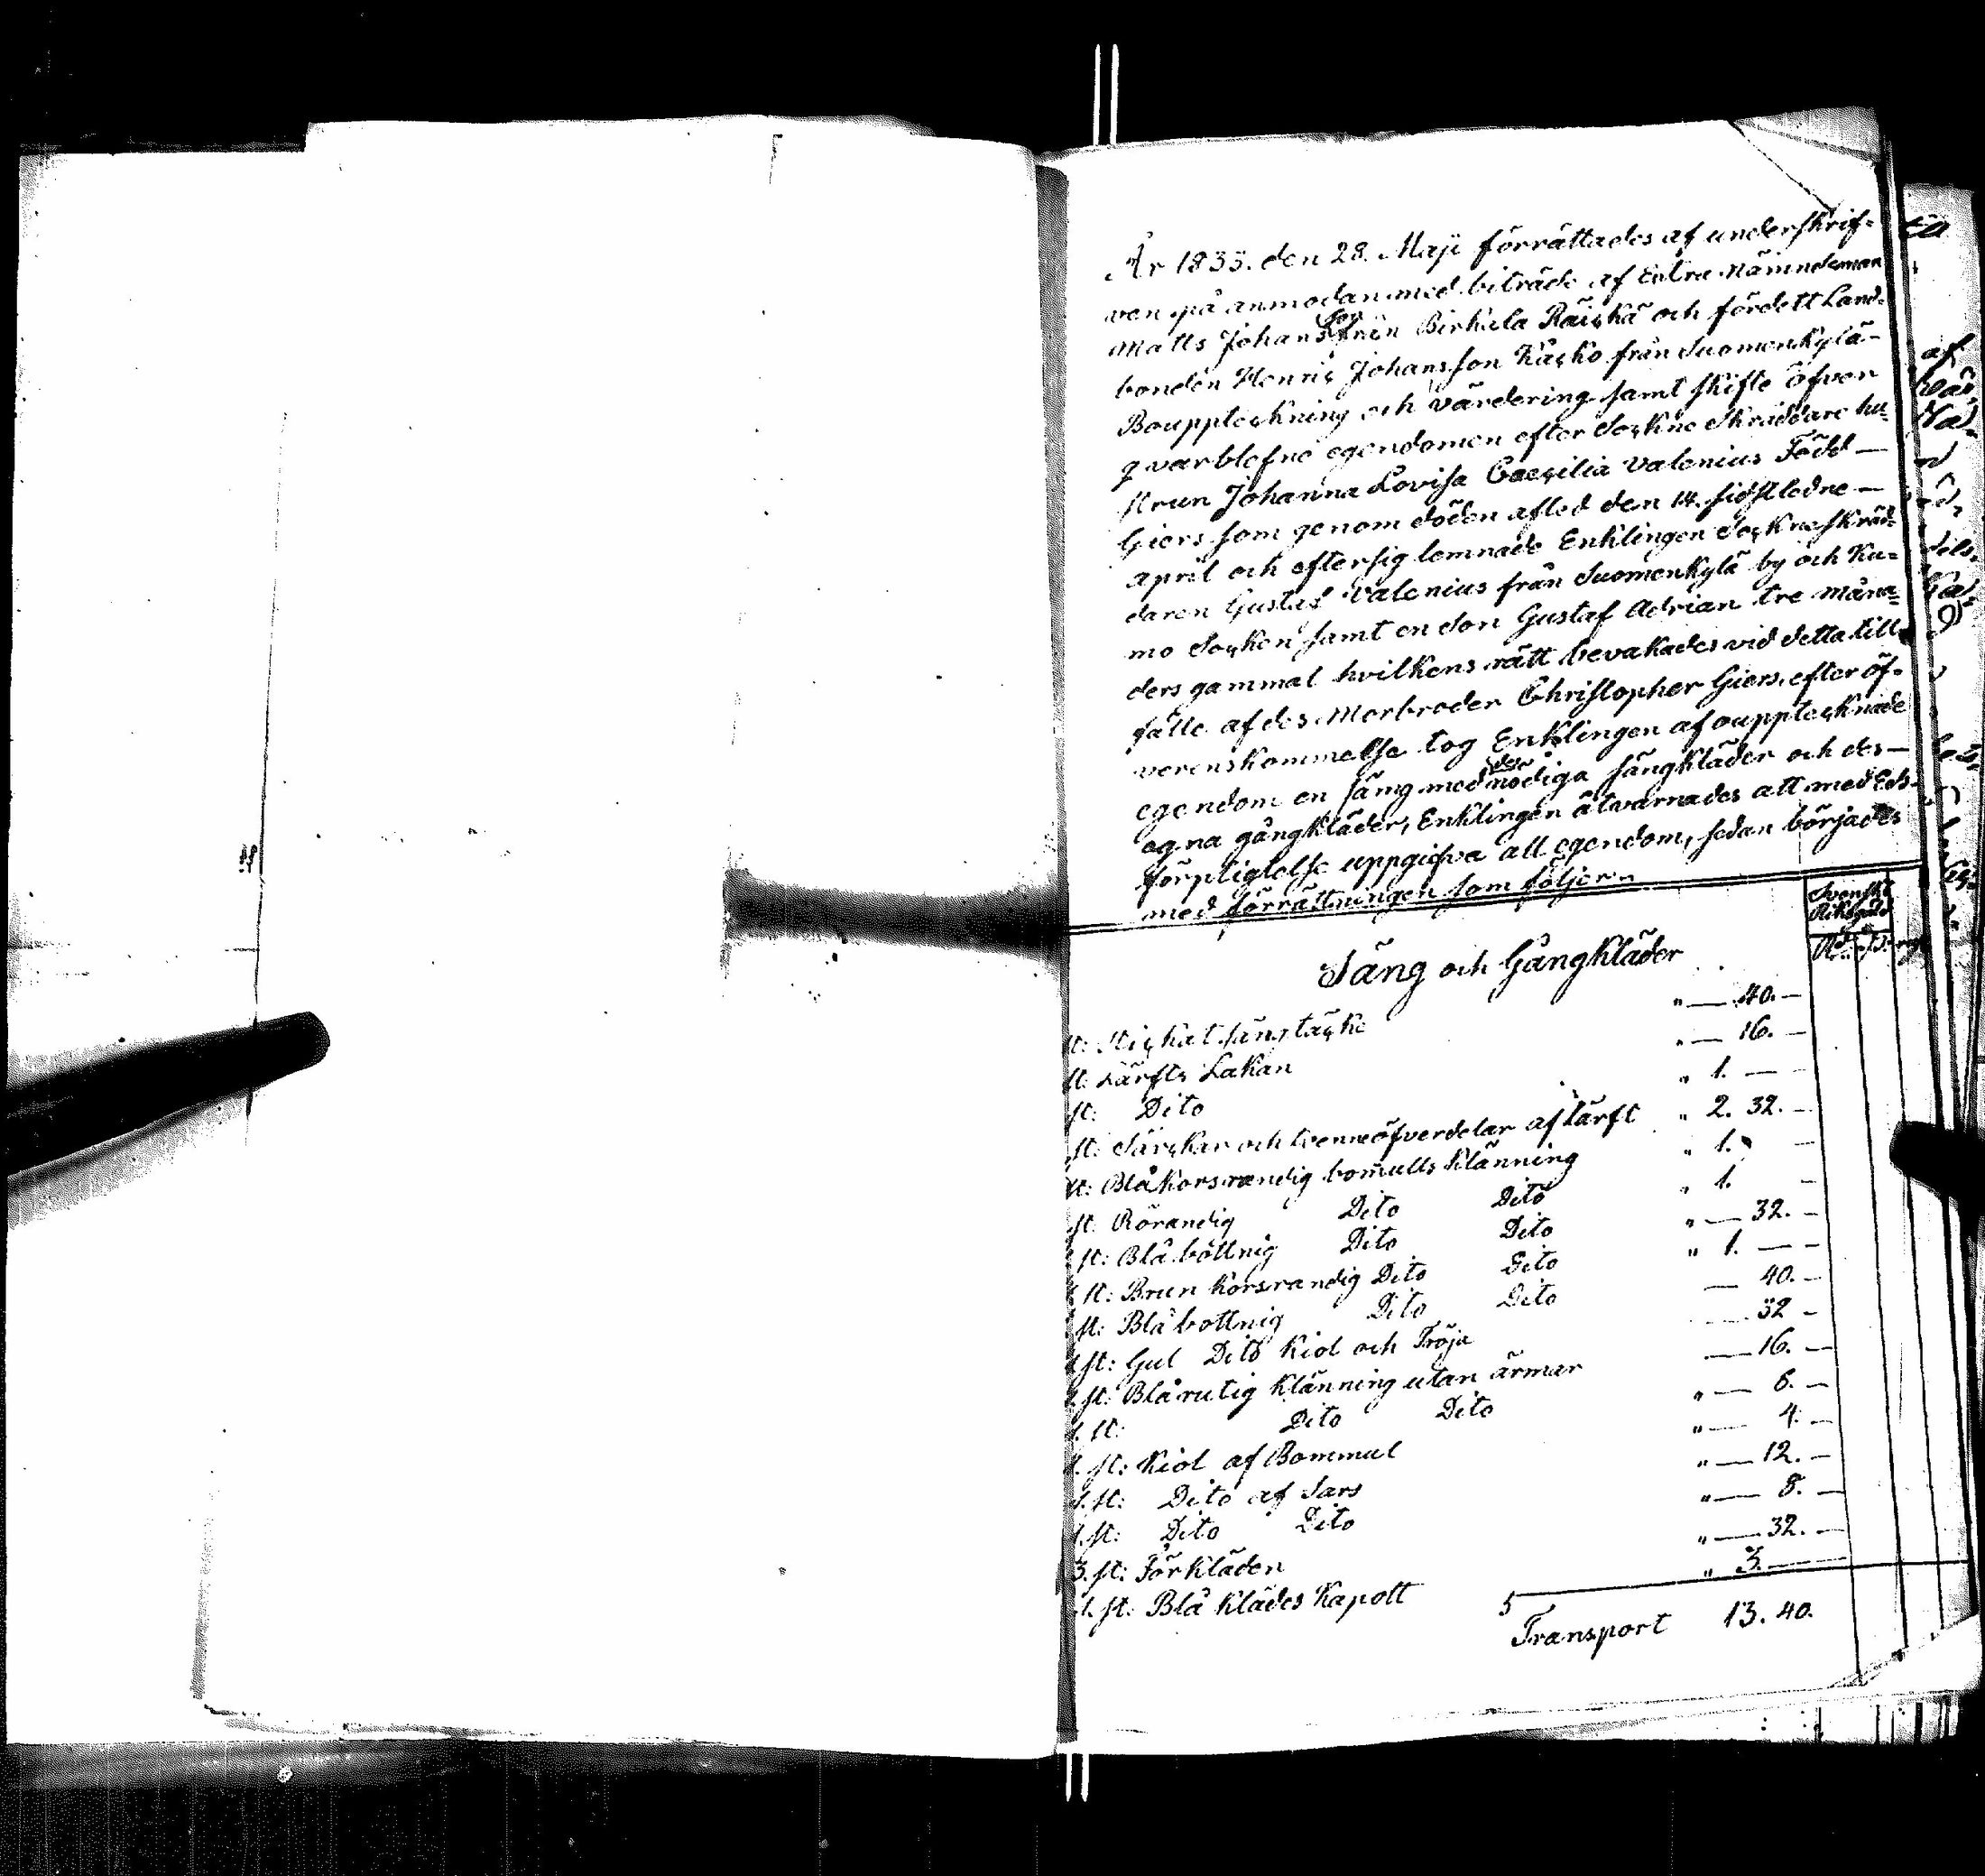 År 1835. den 28. Maji förrättades af underskrif-
ven på anmodan med biträde af Extra Nämndeman
Matts Johansson från Birkala Räickä och fördett Land-
bonden Henric Johansson Kåcko från Suomenkylä-
Bouppteckning och värdering samt skifte öfver
qvarblefne egendomen efter Sockne Skräddare hu-
strun Johanna Lovisa Caecilia Valenius Född —
Giers som genom döden afled den 14. sidstledne —
april och eftersig lemnade Enklingen Sockneskräd-
daren Gustaf Valenius från Suomenkylä by och Ku-
mo Socken samt en son Gustaf Adrian tre måna-
ders gammal hvilkens rätt bevakades vid detta till-
fälle af des Morbroder Christopher Giers, efter öf-
verenskommelse tog Enklingen af oupptecknade
egendom en säng med des nödiga sängkläder och des —
egna gångkläder, Enklingen åtvarnades att med Eds-
förpligtelse uppgifva all egendom, sedan börjades
med förrättningen som följer
Svenskt
Riksgäld
Rd
Säng och Gångkläder
st: Stickat sängtäcke " — 40. —
st: Lärfts Lakan " — 16. —
st: Dito " 1. — —
st: Särckar och tvenne öfverdelar af Lärft " 2. 32. —
st: Blåkorsrandig bomulls Klänning " 1. —
st: Rörandig Dito Dito " 1. —
st: Blå bottnig Dito Dito " — 32. —
1 st: Brun Korsrandig Dito Dito " 1. — —
st: Blå bottnig Dito Dito — 40. —
1 st: Gul Dito Kiol och Tröja — 32 —
1 st: Blårutig Klänning utan ärmar — 16. —
1. st: Dito Dito " — 6. —
1. st: Kiol af Bommul " — 4. —
1. st: Dito af Sars " — 12. —
1. st: Dito Dito " — 8. —
3. st: Förkläden " — 32. —
1. st: Blå Klädes Kapott " 3. —
Transport 13. 40.